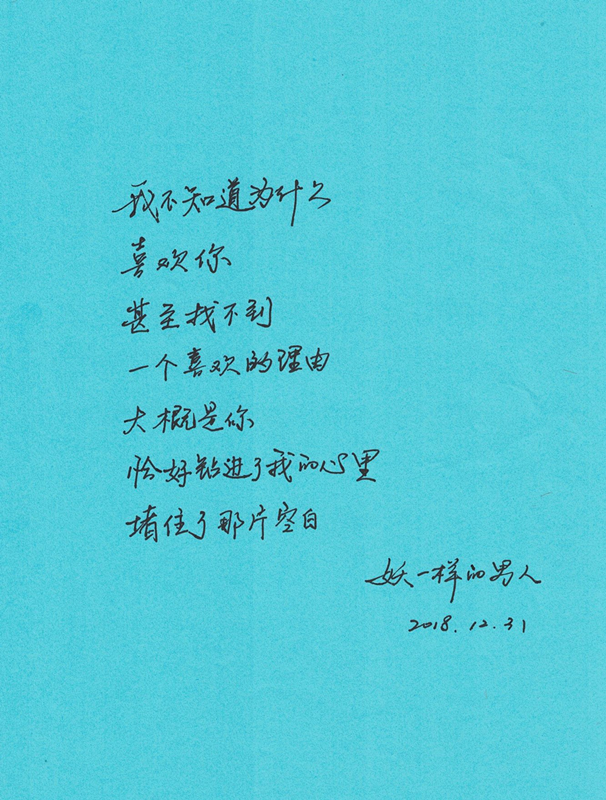 我不知道为什么
喜欢你
甚至找不到
一个喜欢的理由
大概是你
恰好钻进了我的心里
堵住了那片空白
妖一样的男人
2018.12.31